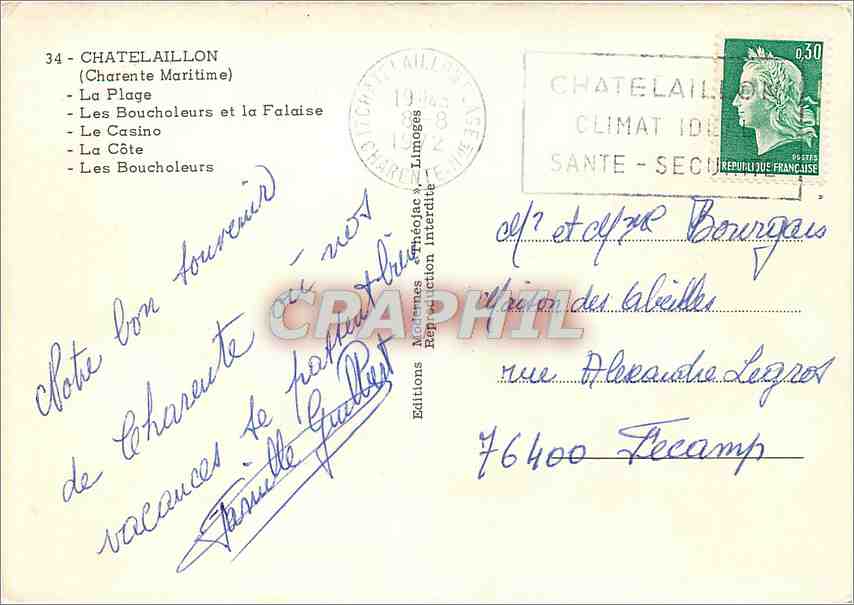 34 - CHATELAILLON
(Charente Maritime)
- La Plage
- Les Boucholeurs et la Falaise
- Le Casino
- La Côte
- Les Boucholeurs
17 CHATELAILLON PLAGE
8 - 8
1972
CHARENTE-Mme
CHATELAILLON
CLIMAT IDE
SANTE - SECURITE
0,30
POSTES
REPUBLIQUE FRANÇAISE
Notre bon souvenir
de Charente où nos
vacances se passent bien
Famille Guilbert
Editions Modernes « Théojac », Limoges
Reproduction Interdite
CPAPHIL
Mr et Mme Bourgais
Maison des Abeilles
rue Alexandre Legros
76400 Fecamp